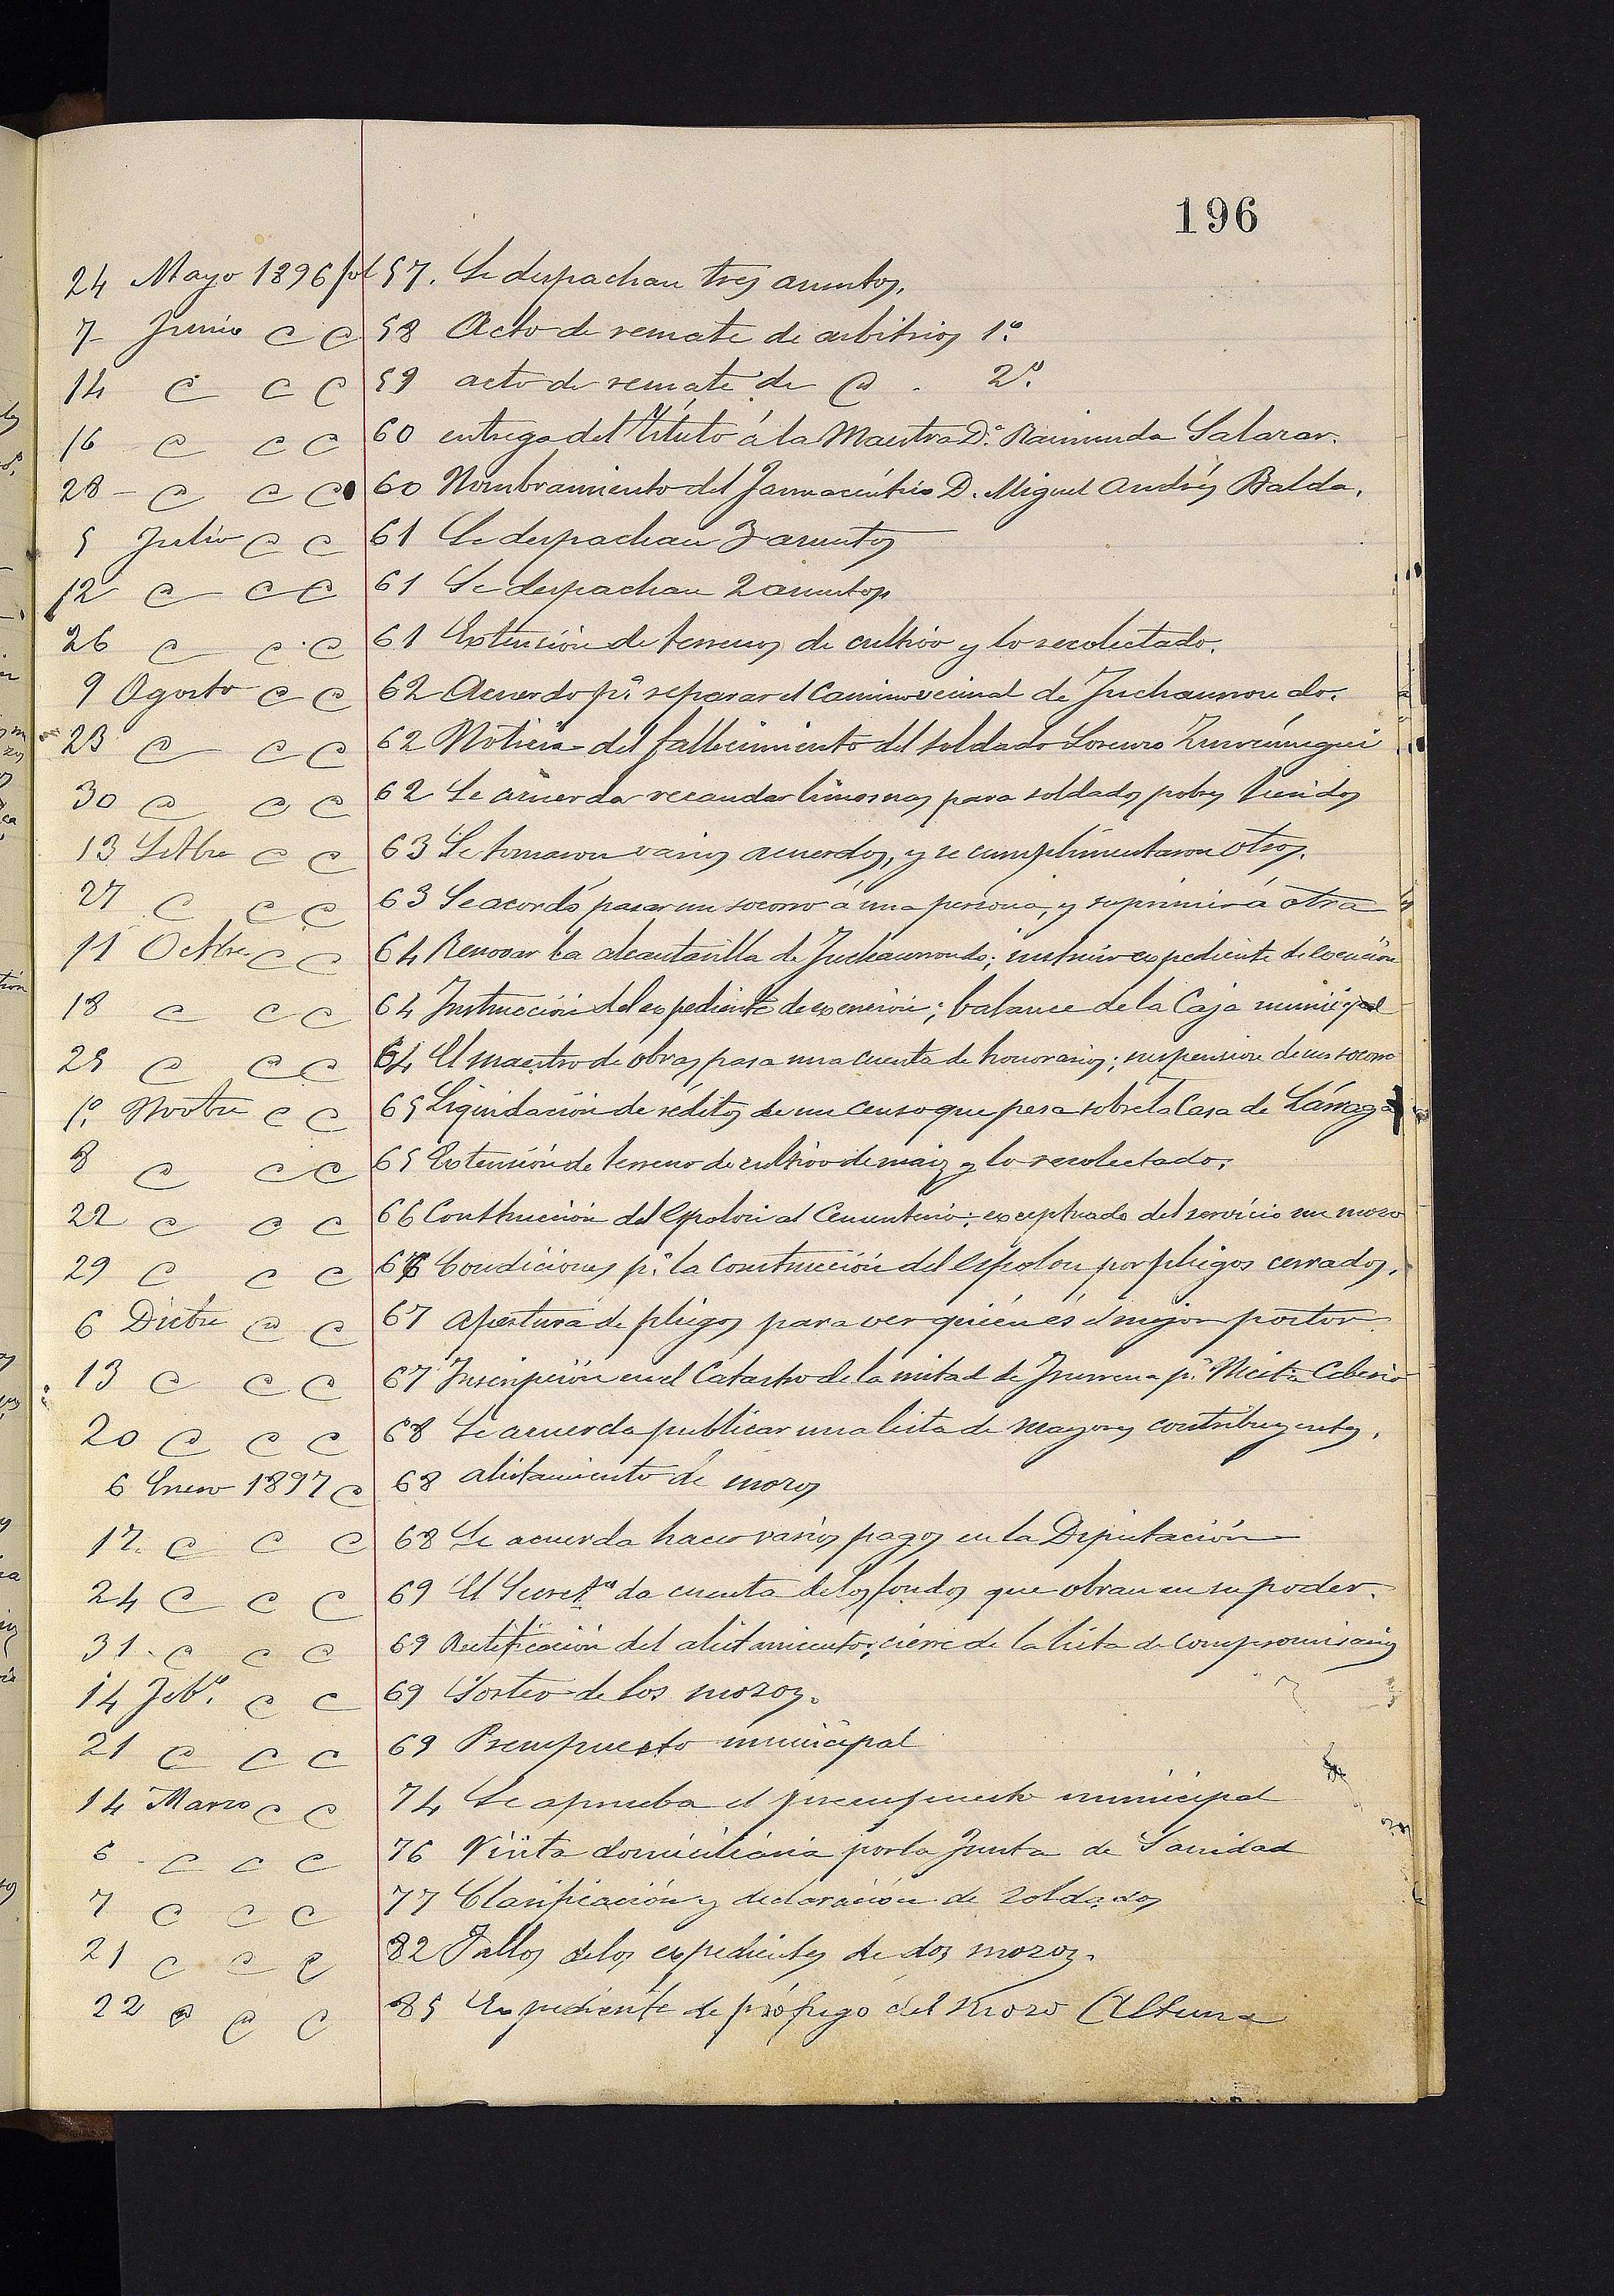 196
24 Mayo 1896 fol 57. Se despachan tres asuntos.
7 Junio " " 58 Acto de remate de arbitrios 1º.
14 " " " 59 acto de remate de " . 2º.
16 " " " 60 entrega del título á la Maestra D.ª Raimunda Salazar.
28 - " " " 60 Nombramiento del Farmacéutico D. Miguel Andrés Balda.
5 Julio " " 61 Se despachan 3 asuntos
12 " " " 61 Se despachan 2 asuntos
26 " " " 61 Extensión de terrenos de cultivo y lo recolectado.
9 Agosto " " 62 Acuerdo pª reparar el Camino vecinal de Juchaunondo.
23 " " " 62 Noticia del fallecimiento del soldado Lorenzo
30 " " " 62 Se acuerda recaudar limosnas para soldados pobres heridos
13 Setbre " " 63 Se tomaron varios acuerdos, y se cumplimentaron otros.
27 " " " 63 Se acordó pasar un socorro á una persona, y suprimir á otra
11 Octbre " " 64 Renovar la alcantarilla de Juchaunondo; instruir expediente de exención
18 " " " 64 Instrucción del expediente de exención; balance de la Caja municipal
25 " " " 64 El maestro de obras pasa una cuenta de honorarios; suspensión de un socorro
1º. Novbre " " 65 Liquidación de réditos de un censo que pesa sobre la Casa de Lárraga
8 " " " 65 Extensión de terreno de cultivo de maiz y lo recolectado.
22 " " " 66 Construcción del Espolón al Cementerio; exceptuado del servicio un mozo
29 " " " 66 Condiciones pª. la construcción del Espolon por pliegos cerrados.
6 Dicbre " " 67 Apertura de pliegos para ver quién es el mejor postor
13 " " " 67 Inscripción en el Catastro de la mitad de pr.
20 " " " 68 Se acuerda publicar una lista de mayores contribuyentes.
6 Enero 1897 " 68 alistamiento de mozos
17. " " " 68 Se acuerda hacer varios pagos en la Diputación
24 " " " 69 El Secretº da cuenta de los fondos que obran en su poder.
31. " " " 69 Rectificación del alistamiento; cierre de la lista de compromisarios
14 Febº. " " 69 Sorteo de los mozos.
21 " " " 69 Presupuesto municipal
14 Marzo " " 74 Se aprueba el presupuesto municipal
6 . " " " 76 Visita domiciliaria por la Junta de Sanidad
7 " " " 77 Clasificación y declaración de soldados
21 " " " 82 Fallos de los expedientes de dos mozos.
22 " " " 85 Expediente de prófugo del mozo Altuna